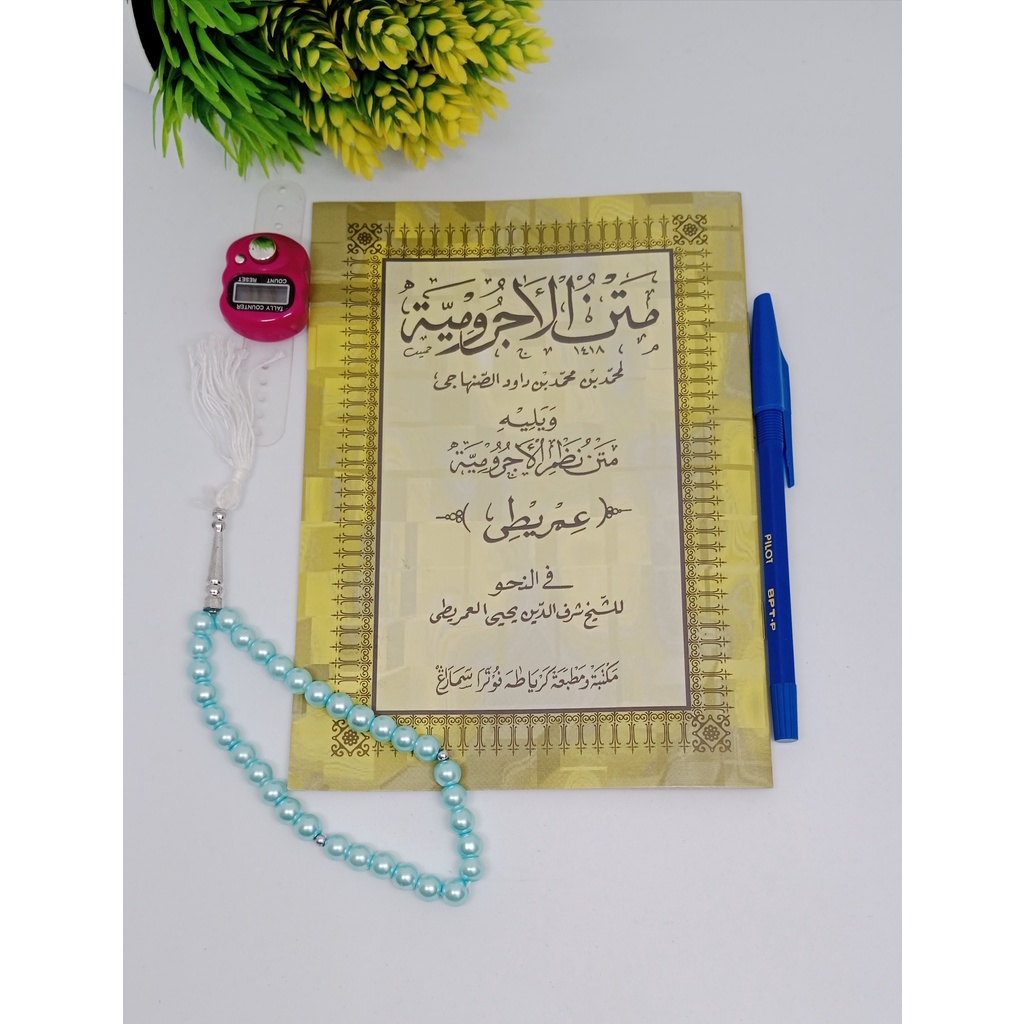 متن الأجرومية
١٤١٨
لمحمد بن محمد بن داود الصنهاجى
وَيَلِيْهِ
مَتْنُ نَظْمِ الْأَجُرُوْمِيَّةِ
﴿عِمْرِيْطِى﴾
في النحو
للشيخ شرف الدين يحيى العمريطى
مكتبة ومطبعة كرياطه فوترا سمارڠ
TALLY COUNTER
COUNT RESET
PILOT BPT-P